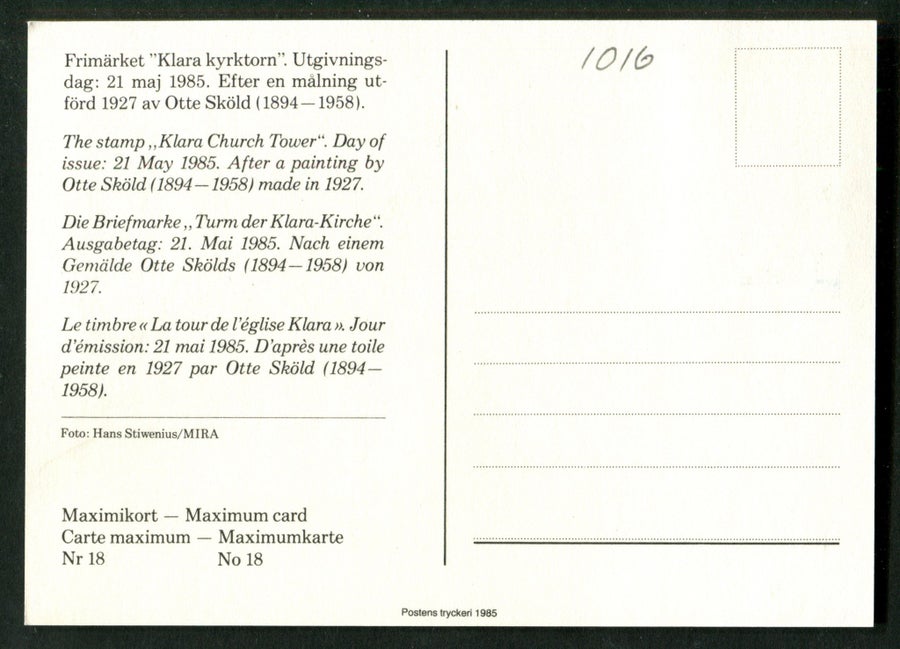 Frimärket "Klara kyrktorn". Utgivnings-
dag: 21 maj 1985. Efter en målning ut-
förd 1927 av Otte Sköld (1894—1958).
The stamp ,,Klara Church Tower“. Day of
issue: 21 May 1985. After a painting by
Otte Sköld (1894—1958) made in 1927.
Die Briefmarke ,,Turm der Klara-Kirche“.
Ausgabetag: 21. Mai 1985. Nach einem
Gemälde Otte Skölds (1894—1958) von
1927.
Le timbre « La tour de l'église Klara ». Jour
d'émission: 21 mai 1985. D'après une toile
peinte en 1927 par Otte Sköld (1894—
1958).
Foto: Hans Stiwenius/MIRA
Maximikort — Maximum card
Carte maximum — Maximumkarte
Nr 18 No 18
1016
Postens tryckeri 1985